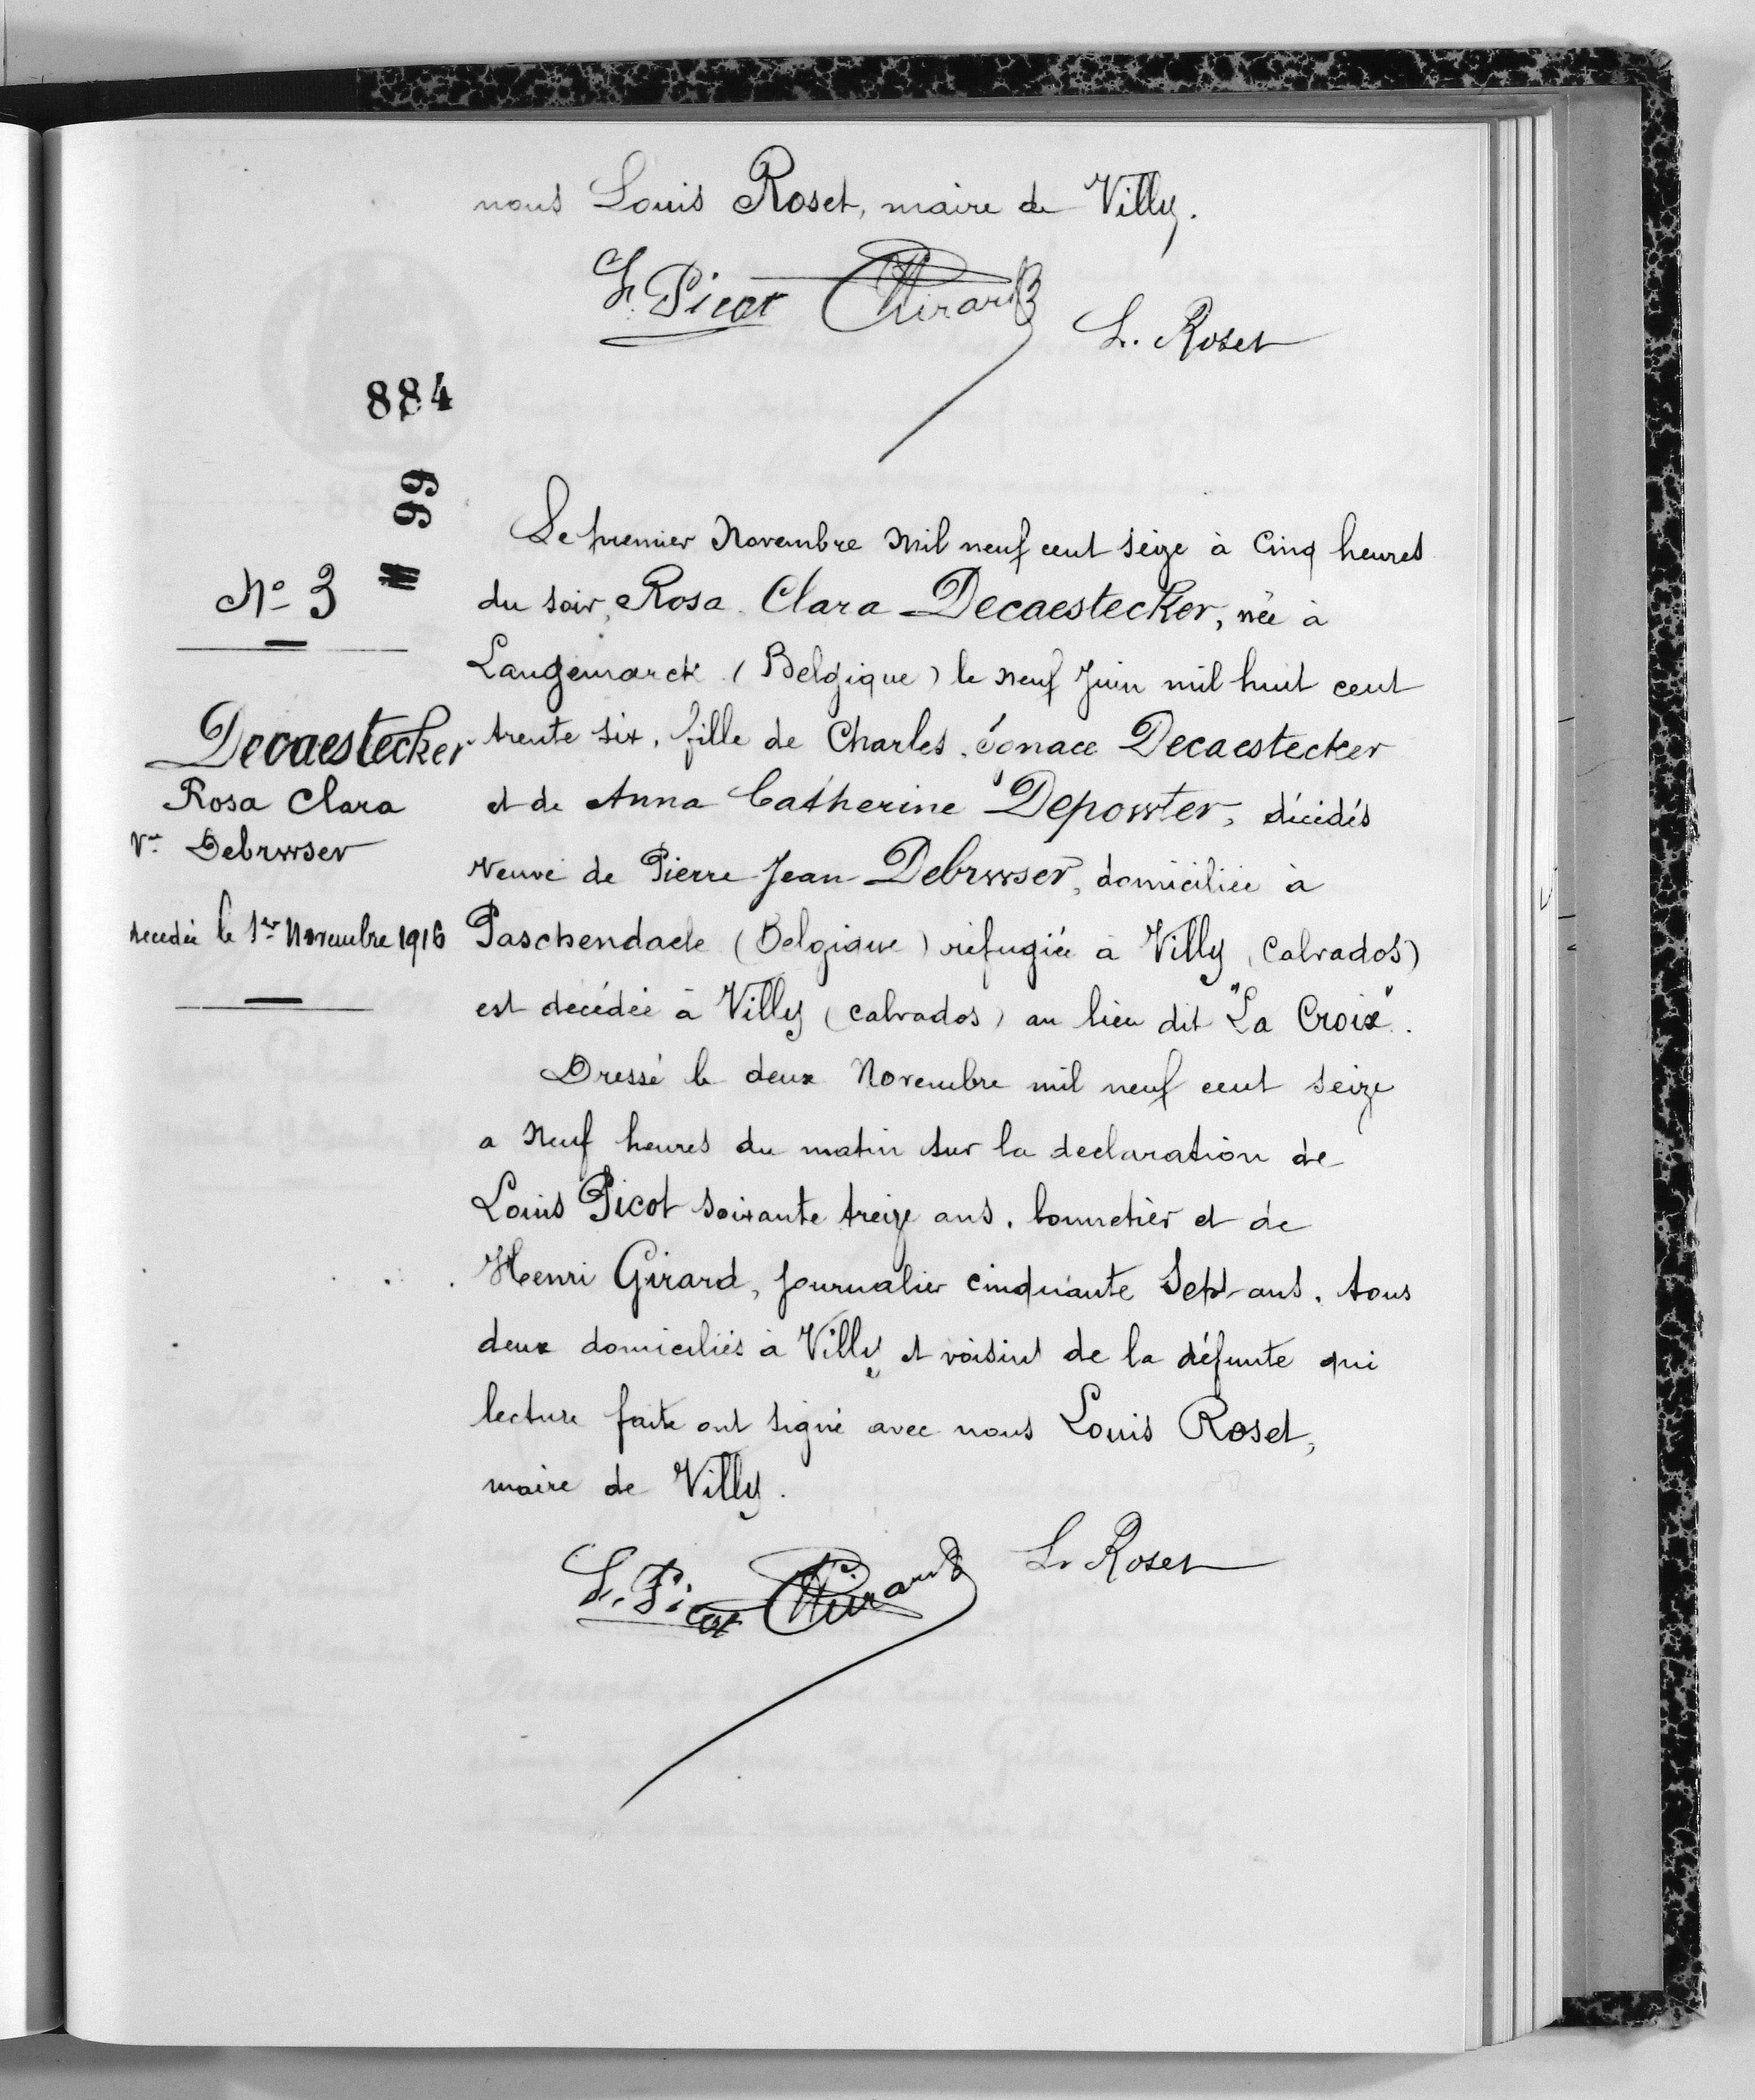 nous Louis Roset, maire de Villy.
L. Picot Girard
L. Roset
884
99
N° 3
Decaestecker
Rosa Clara
Vve Debrwser
décédée le 1er Novembre 1916
Le premier Novembre Mil neuf cent seize à Cinq heures
du soir, Rosa Clara Decaestecker, née à
Langemarck (Belgique) le neuf Juin mil huit cent
trente six, fille de Charles Ignace Decaestecker
et de Anna Catherine Depowter, décédés
veuve de Pierre Jean Debrwser, domiciliée à
Paschendaele (Belgique) réfugiée à Villy (Calvados)
est decédée à Villy (calvados) au lieu dit "La Croix".
Dressé le deux Novembre mil neuf cent seize
a Neuf heures du matin sur la declaration de
Louis Picot soixante treize ans, bonnetier et de
Henri Girard, journalier cinquante Sept ans, tous
deux domiciliés à Villy et voisins de la défunte qui
lecture faite ont signé avec nous Louis Roset,
maire de Villy.
L. Picot Girard L. Roset